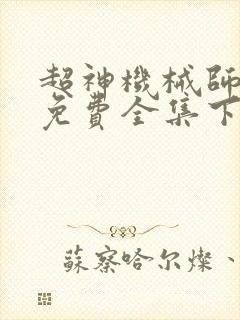 超神機械師
免費全集下
蘇察哈尔燦、